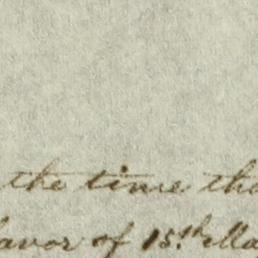 the time tha
favor of 15th May